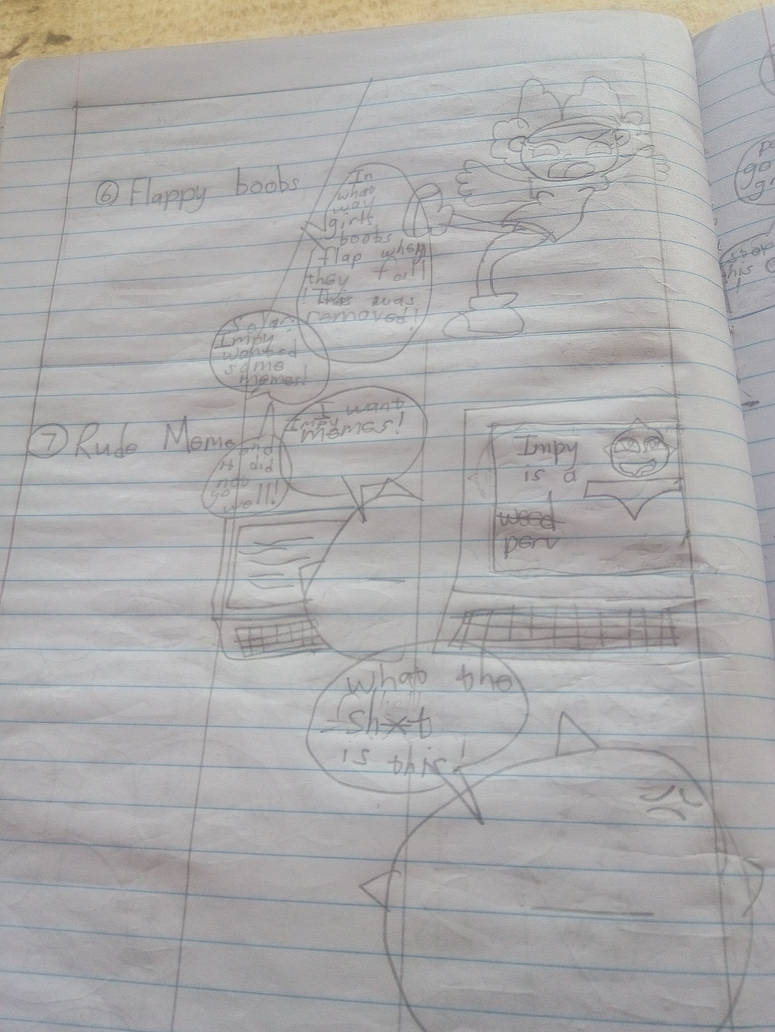 ⑥ Flappy boobs
In
what
way
girls
boobs
flap when
they fall
! This was
removed!
So far
Impy
wanted
some
memes!
⑦ Rude Meme
and
it did
not
go
well!
I want
Impy
memes!
Impy
is a
weed
perv
What the
Sh*t
is this!
go
this